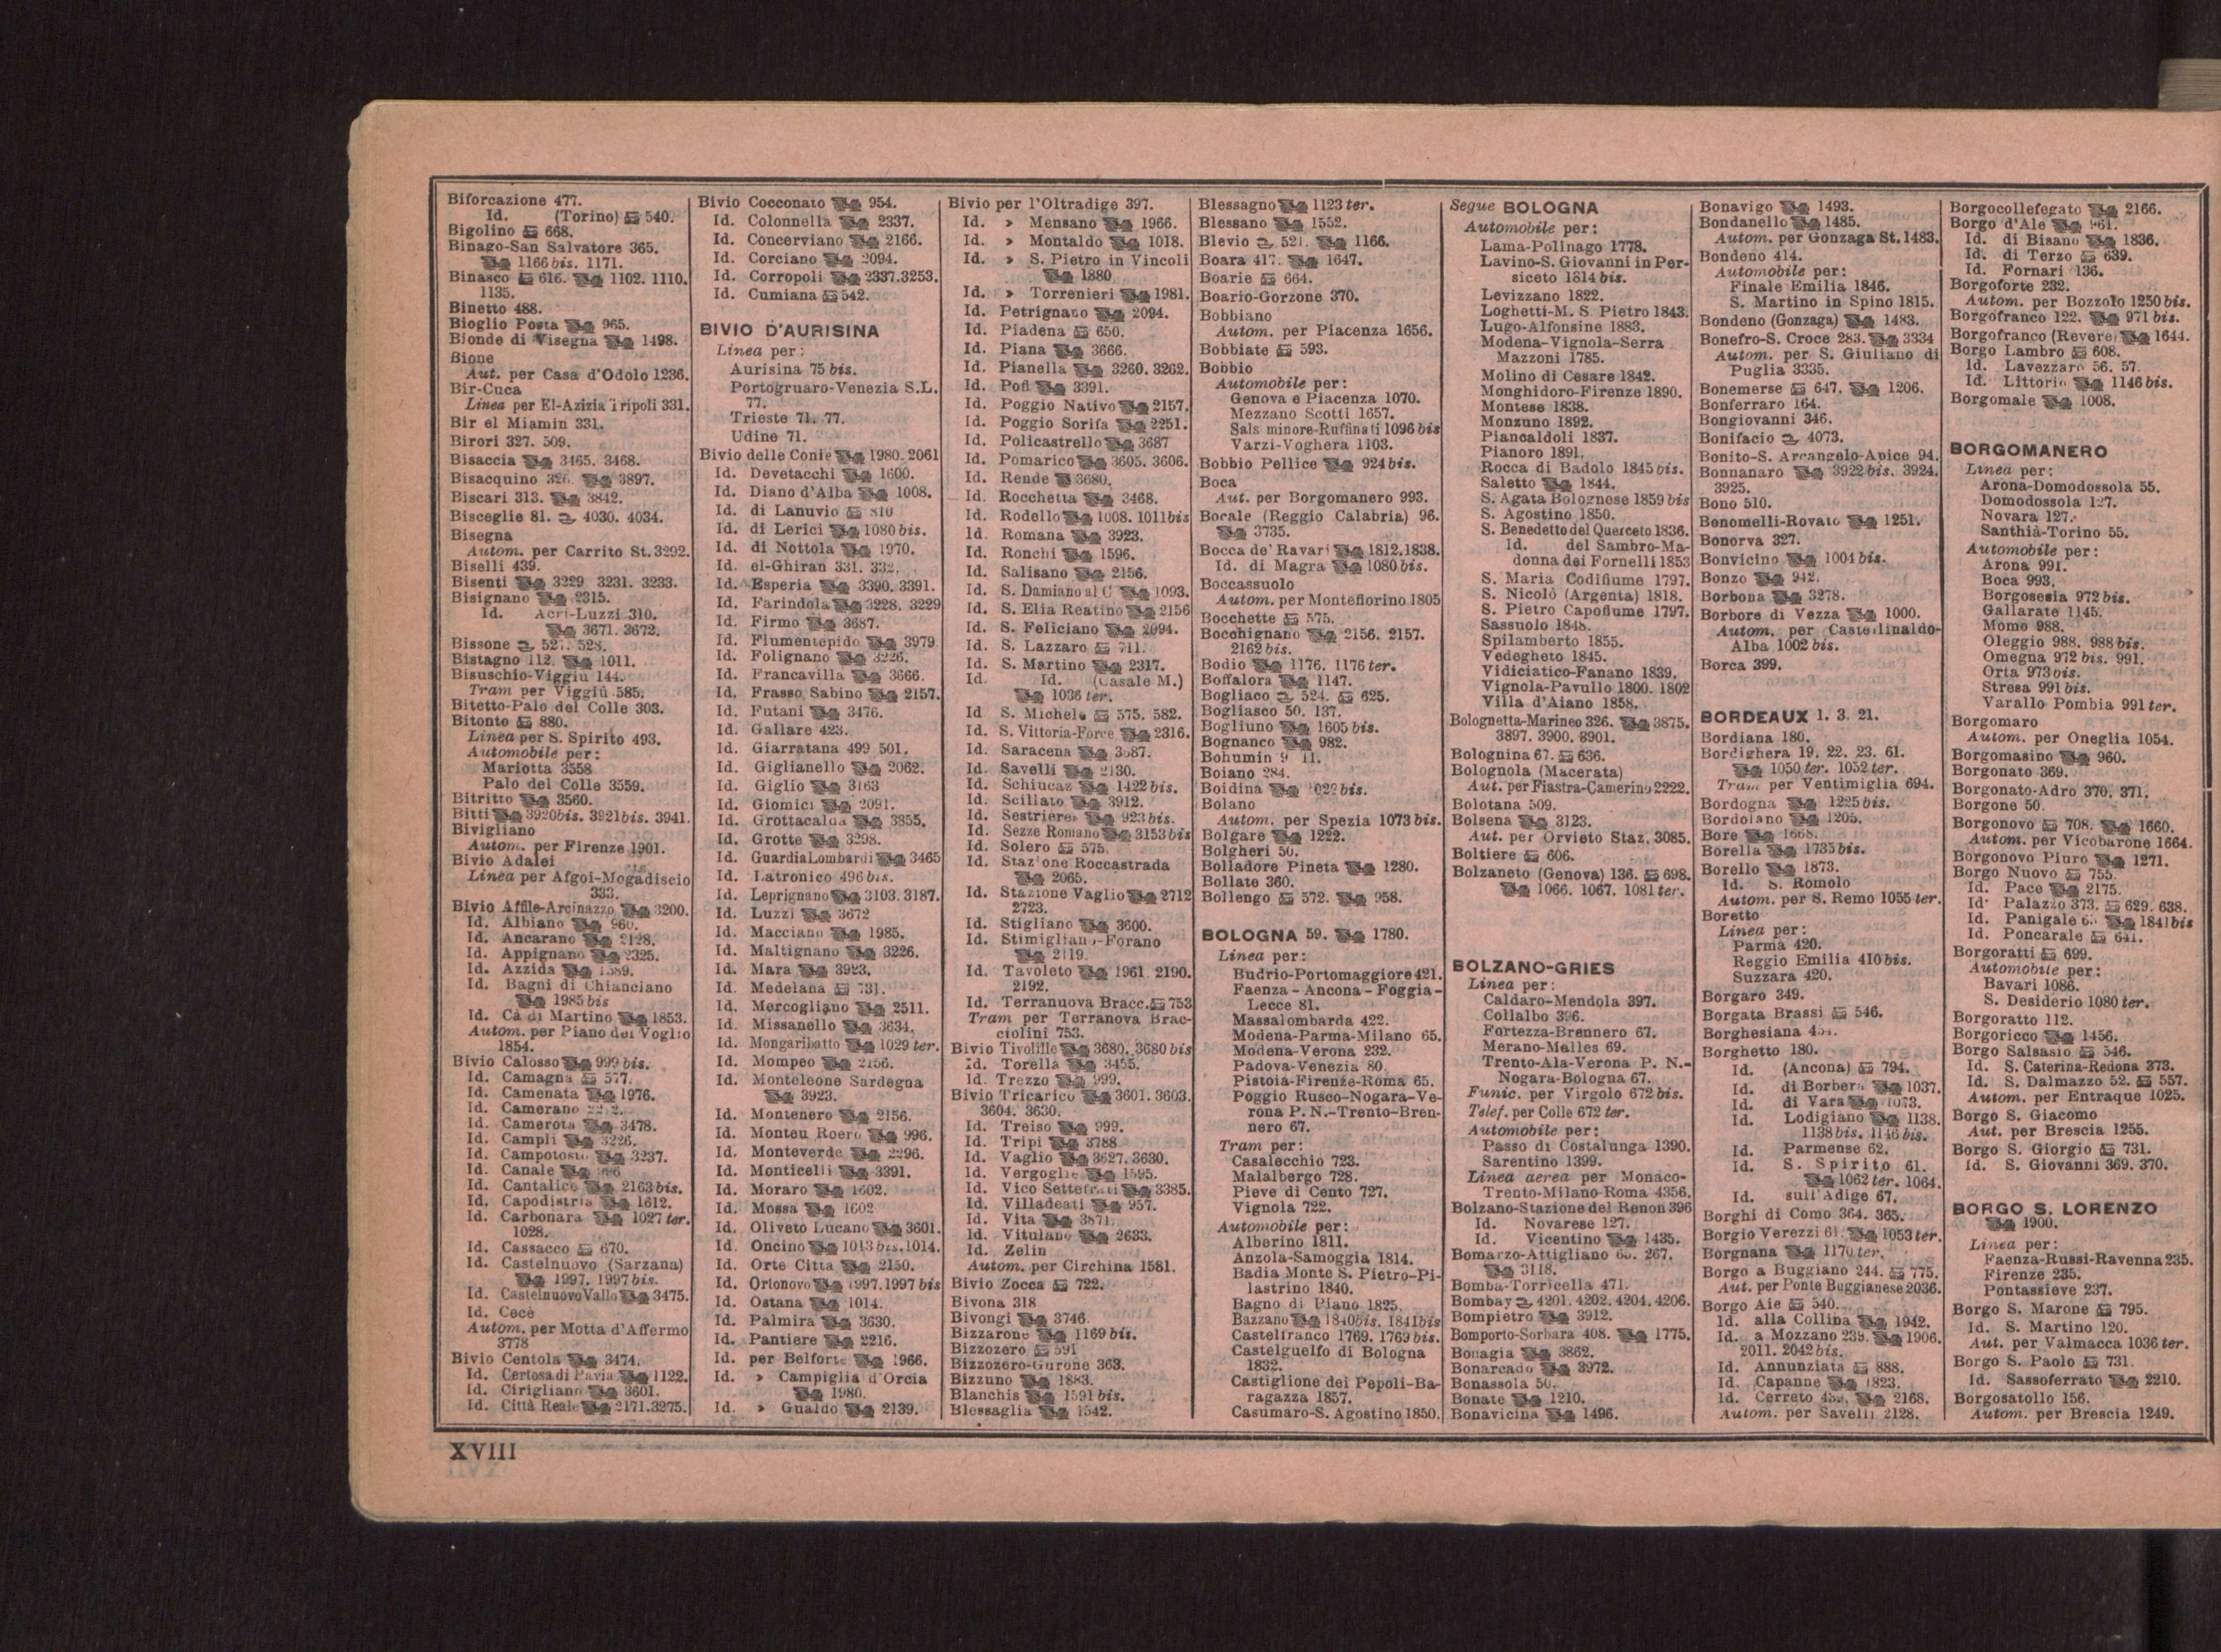 Biforcazione 477.
Id. (Torino) 540.
Bigolino 668.
Binago-San Salvatore 365.
1166 bis. 1171.
Binasco 616. 1102. 1110.
1135.
Binetto 488.
Bioglio Posta 965.
Bionde di Visegna 1498.
Bione
Aut. per Casa d'Odolo 1236.
Bir-Cuca
Linea per El-Azizia Tripoli 331.
Bir el Miamin 331.
Birori 327. 509.
Bisaccia 3465. 3468.
Bisacquino 326. 3897.
Biscari 313. 3842.
Bisceglie 81. 4030. 4034.
Bisegna
Autom. per Carrito St. 3292.
Biselli 439.
Bisenti 3229 3231. 3233.
Bisignano 2315.
Id. Acri-Luzzi 310.
3671. 3672.
Bissone 527. 528.
Bistagno 112. 1011.
Bisuschio-Viggiù 144.
Tram per Viggiù 585.
Bitetto-Palo del Colle 303.
Bitonto 880.
Linea per S. Spirito 493.
Automobile per:
Mariotta 3558
Palo del Colle 3559.
Bitritto 3560.
Bitti 3920bis. 3921bis. 3941.
Bivigliano
Autom. per Firenze 1901.
Bivio Adalei
Linea per Afgoi-Mogadiscio
333.
Bivio Affile-Arcinazzo 3200.
Id. Albiano 960.
Id. Ancarano 2128.
Id. Appignano 2325.
Id. Azzida 1589.
Id. Bagni di Chianciano
1985 bis
Id. Cà di Martino 1853.
Autom. per Piano del Voglio
1854.
Bivio Calosso 999 bis.
Id. Camagna 577.
Id. Camenata 1976.
Id. Camerano
Id. Camerota 3478.
Id. Campli 3226.
Id. Campotosto 3237.
Id. Canale
Id. Cantalice 2163 bis.
Id. Capodistria 1612.
Id. Carbonara 1027 ter.
1028.
Id. Cassacco 670.
Id. Castelnuovo (Sarzana)
1997. 1997 bis.
Id. Castelnuovo Vallo 3475.
Id. Cecè
Autom. per Motta d'Affermo
3778
Bivio Centola 3474.
Id. Certosa di Pavia 1122.
Id. Cirigliano 3601.
Id. Città Reale 2171. 3275.
Bivio Cocconato 954.
Id. Colonnella 2337.
Id. Concerviano 2166.
Id. Corciano 2094.
Id. Corropoli 2337. 3253.
Id. Cumiana 542.
BIVIO D'AURISINA
Linea per:
Aurisina 75 bis.
Portogruaro-Venezia S.L.
77.
Trieste 71. 77.
Udine 71.
Bivio delle Conie 1980. 2061
Id. Devetacchi 1600.
Id. Diano d'Alba 1008.
Id. di Lanuvio 810
Id. di Lerici 1080 bis.
Id. di Nottola 1970.
Id. el-Ghiran 331. 332.
Id. Esperia 3390. 3391.
Id. Farindola 3228. 3229
Id. Firmo 3687.
Id. Flumentepido 3979
Id. Folignano 3226.
Id. Francavilla 3666.
Id. Frasso Sabino 2157.
Id. Futani 3476.
Id. Gallare 423.
Id. Giarratana 499 501.
Id. Giglianello 2062.
Id. Giglio 3163
Id. Giomici 2091.
Id. Grottacalda 3855.
Id. Grotte 3298.
Id. Guardia Lombardi 3465
Id. Latronico 496 bis.
Id. Leprignano 3103. 3187.
Id. Luzzi 3672
Id. Macciano 1985.
Id. Maltignano 3226.
Id. Mara 3923.
Id. Medelana 731.
Id. Mercogliano 2511.
Id. Missanello 3634.
Id. Mongaribatto 1029 ter.
Id. Mompeo 2156.
Id. Monteleone Sardegna
3923.
Id. Montenero 2156.
Id. Monteu Roero 996.
Id. Monteverde 2296.
Id. Monticelli 3391.
Id. Moraro 1602.
Id. Mossa 1602
Id. Oliveto Lucano 3601.
Id. Oncino 1013 bis. 1014.
Id. Orte Città 2150.
Id. Ortonovo 1997. 1997 bis
Id. Ostana 1014.
Id. Palmira 3630.
Id. Pantiere 2216.
Id. per Belforte 1966.
Id. » Campiglia d'Orcia
1980.
Id. » Gualdo 2139.
Bivio per l'Oltradige 397.
Id. » Mensano 1966.
Id. » Montaldo 1018.
Id. » S. Pietro in Vincoli
1880
Id. » Torrenieri 1981.
Id. Petrignano 2094.
Id. Piadena 650.
Id. Piana 3666.
Id. Pianella 3260. 3262.
Id. Pofi 3391.
Id. Poggio Nativo 2157.
Id. Poggio Sorifa 2251.
Id. Policastrello 3687
Id. Pomarico 3605. 3606.
Id. Rende 3680.
Id. Rocchetta 3468.
Id. Rodello 1008. 1011bis
Id. Romana 3923.
Id. Ronchi 1596.
Id. Salisano 2156.
Id. S. Damiano al C 1093.
Id. S. Elia Reatino 2156
Id. S. Feliciano 2094.
Id. S. Lazzaro 711.
Id. S. Martino 2317.
Id. Id. (Casale M.)
1036 ter.
Id S. Michele 575. 582.
Id. S. Vittoria-Force 2316.
Id. Saracena 3687.
Id. Savelli 2130.
Id. Schiucaz 1422 bis.
Id. Scillato 3912.
Id. Sestrieres 923 bis.
Id. Sezze Romano 3153 bis
Id. Solero 575.
Id. Stazione Roccastrada
2065.
Id. Stazione Vaglio 2712
2723.
Id. Stigliano 3600.
Id. Stimigliano-Forano
2119.
Id. Tavoleto 1961. 2190.
2192.
Id. Terranuova Bracc. 753
Tram per Terranova Brac-
ciolini 753.
Bivio Tivolille 3680. 3680 bis
Id. Torella 3455.
Id. Trezzo 999.
Bivio Tricarico 3601. 3603.
3604. 3630.
Id. Treiso 999.
Id. Tripi 3788
Id. Vaglio 3627. 3630.
Id. Vergoglie 1595.
Id. Vico Settefrati 3385.
Id. Villadeati 957.
Id. Vita 3871.
Id. Vitulano 2633.
Id. Zelin
Autom. per Circhina 1581.
Bivio Zocca 722.
Bivona 318
Bivongi 3746.
Bizzarone 1169 bis.
Bizzozero 591
Bizzozero-Gurone 363.
Bizzuno 1883.
Blanchis 1591 bis.
Blessaglia 1542.
Blessagno 1123 ter.
Blessano 1552.
Blevio 521. 1166.
Boara 417. 1647.
Boarie 664.
Boario-Gorzone 370.
Bobbiano
Autom. per Piacenza 1656.
Bobbiate 593.
Bobbio
Automobile per:
Genova e Piacenza 1070.
Mezzano Scotti 1657.
Sals minore-Ruffinati 1096 bis
Varzi-Voghera 1103.
Bobbio Pellice 924 bis.
Boca
Aut. per Borgomanero 993.
Bocale (Reggio Calabria) 96.
3735.
Bocca de' Ravari 1812. 1838.
Id. di Magra 1080 bis.
Boccassuolo
Autom. per Montefiorino 1805
Bocchette 575.
Bocchignano 2156. 2157.
2162 bis.
Bodio 1176. 1176 ter.
Boffalora 1147.
Bogliaco 524. 625.
Bogliasco 50. 137.
Bogliuno 1605 bis.
Bognanco 982.
Bohumin 9 11.
Boiano 284.
Boidina 1022 bis.
Bolano
Autom. per Spezia 1073 bis.
Bolgare 1222.
Bolgheri 50.
Bolladore Pineta 1280.
Bollate 360.
Bollengo 572. 958.
BOLOGNA 59. 1780.
Linea per:
Budrio-Portomaggiore 421.
Faenza-Ancona-Foggia-
Lecce 81.
Massalombarda 422.
Modena-Parma-Milano 65.
Modena-Verona 232.
Padova-Venezia 80.
Pistoia-Firenze-Roma 65.
Poggio Rusco-Nogara-Ve-
rona P. N.-Trento-Bren-
nero 67.
Tram per:
Casalecchio 723.
Malalbergo 728.
Pieve di Cento 727.
Vignola 722.
Automobile per:
Alberino 1811.
Anzola-Samoggia 1814.
Badia Monte S. Pietro-Pi-
lastrino 1840.
Bagno di Piano 1825.
Bazzano 1840bis. 1841bis
Castelfranco 1769. 1769 bis.
Castelguelfo di Bologna
1832.
Castiglione dei Pepoli-Ba-
ragazza 1857.
Casumaro-S. Agostino 1850.
Segue BOLOGNA
Automobile per:
Lama-Polinago 1778.
Lavino-S. Giovanni in Per-
siceto 1814 bis.
Levizzano 1822.
Loghetti-M. S. Pietro 1843.
Lugo-Alfonsine 1883.
Modena-Vignola-Serra
Mazzoni 1785.
Molino di Cesare 1842.
Monghidoro-Firenze 1890.
Montese 1838.
Monzuno 1892.
Piancaldoli 1837.
Pianoro 1891.
Rocca di Badolo 1845 bis.
Saletto 1844.
S. Agata Bolognese 1859 bis
S. Agostino 1850.
S. Benedetto del Querceto 1836.
Id. del Sambro-Ma-
donna dei Fornelli 1853
S. Maria Codifiume 1797.
S. Nicolò (Argenta) 1818.
S. Pietro Capofiume 1797.
Sassuolo 1848.
Spilamberto 1855.
Vedegheto 1845.
Vidiciatico-Fanano 1839.
Vignola-Pavullo 1800. 1802
Villa d'Aiano 1858.
Bolognetta-Marineo 326. 3875.
3897. 3900. 3901.
Bolognina 67. 636.
Bolognola (Macerata)
Aut. per Fiastra-Camerino 2222.
Bolotana 509.
Bolsena 3123.
Aut. per Orvieto Staz. 3085.
Boltiere 606.
Bolzaneto (Genova) 136. 698.
1066. 1067. 1081 ter.
BOLZANO-GRIES
Linea per:
Caldaro-Mendola 397.
Collalbo 396.
Fortezza-Brennero 67.
Merano-Malles 69.
Trento-Ala-Verona P. N.-
Nogara-Bologna 67.
Funic. per Virgolo 672 bis.
Telef. per Colle 672 ter.
Automobile per:
Passo di Costalunga 1390.
Sarentino 1399.
Linea aerea per Monaco-
Trento-Milano-Roma 4356.
Bolzano-Stazione del Renon 396
Id. Novarese 127.
Id. Vicentino 1435.
Bomarzo-Attigliano 65. 267.
3118.
Bomba-Torricella 471.
Bombay 4201. 4202. 4204. 4206.
Bompietro 3912.
Bomporto-Sorbara 408. 1775.
Bonagia 3862.
Bonarcado 3972.
Bonassola 50.
Bonate 1210.
Bonavicina 1496.
Bonavigo 1493.
Bondanello 1485.
Autom. per Gonzaga St. 1483.
Bondeno 414.
Automobile per:
Finale Emilia 1846.
S. Martino in Spino 1815.
Bondeno (Gonzaga) 1483.
Bonefro-S. Croce 283. 3334
Autom. per S. Giuliano di
Puglia 3335.
Bonemerse 647. 1206.
Bonferraro 164.
Bongiovanni 346.
Bonifacio 4073.
Bonito-S. Arcangelo-Apice 94.
Bonnanaro 3922 bis. 3924.
3925.
Bono 510.
Bonomelli-Rovato 1251.
Bonorva 327.
Bonvicino 1004 bis.
Bonzo 942.
Borbona 3278.
Borbore di Vezza 1000.
Autom. per Castellinaldo-
Alba 1002 bis.
Borca 399.
BORDEAUX 1. 3. 21.
Bordiana 180.
Bordighera 19. 22. 23. 61.
1050 ter. 1052 ter.
Tram per Ventimiglia 694.
Bordogna 1225 bis.
Bordolano 1205.
Bore 1668.
Borella 1735 bis.
Borello 1873.
Id. S. Romolo
Autom. per S. Remo 1055 ter.
Boretto
Linea per:
Parma 420.
Reggio Emilia 410 bis.
Suzzara 420.
Borgaro 349.
Borgata Brassi 546.
Borghesiana 454.
Borghetto 180.
Id. (Ancona) 794.
Id. di Borbera 1037.
Id. di Vara 1073.
Id. Lodigiano 1138.
1138 bis. 1146 bis.
Id. Parmense 62.
Id. S. Spirito 61.
1062 ter. 1064.
Id. sull'Adige 67.
Borghi di Como 364. 365.
Borgio Verezzi 61. 1053 ter.
Borgnana 1170 ter.
Borgo a Buggiano 244. 775.
Aut. per Ponte Buggianese 2036.
Borgo Aie 540.
Id. alla Collina 1942.
Id. a Mozzano 239. 1906.
2011. 2042 bis.
Id. Annunziata 888.
Id. Capanne 1823.
Id. Cerreto 439. 2168.
Autom. per Savelli 2128.
Borgocollefegato 2166.
Borgo d'Ale 961.
Id. di Bisano 1836.
Id. di Terzo 639.
Id. Fornari 136.
Borgoforte 232.
Autom. per Bozzolo 1250 bis.
Borgofranco 122. 971 bis.
Borgofranco (Revere) 1644.
Borgo Lambro 608.
Id. Lavezzaro 56. 57.
Id. Littorio 1146 bis.
Borgomale 1008.
BORGOMANERO
Linea per:
Arona-Domodossola 55.
Domodossola 127.
Novara 127.
Santhià-Torino 55.
Automobile per:
Arona 991.
Boca 993.
Borgosesia 972 bis.
Gallarate 1145.
Momo 988.
Oleggio 988. 988 bis.
Omegna 972 bis. 991.
Orta 973 bis.
Stresa 991 bis.
Varallo Pombia 991 ter.
Borgomaro
Autom. per Oneglia 1054.
Borgomasino 960.
Borgonato 369.
Borgonato-Adro 370. 371.
Borgone 50.
Borgonovo 708. 1660.
Autom. per Vicobarone 1664.
Borgonovo Piuro 1271.
Borgo Nuovo 755.
Id. Pace 2175.
Id. Palazzo 373. 629. 638.
Id. Panigale 65. 1841 bis
Id. Poncarale 641.
Borgoratti 699.
Automobile per:
Bavari 1086.
S. Desiderio 1080 ter.
Borgoratto 112.
Borgoricco 1456.
Borgo Salsasio 546.
Id. S. Caterina-Redona 373.
Id. S. Dalmazzo 52. 557.
Autom. per Entraque 1025.
Borgo S. Giacomo
Aut. per Brescia 1255.
Borgo S. Giorgio 731.
Id. S. Giovanni 369. 370.
BORGO S. LORENZO
1900.
Linea per:
Faenza-Russi-Ravenna 235.
Firenze 235.
Pontassieve 237.
Borgo S. Marone 795.
Id. S. Martino 120.
Aut. per Valmacca 1036 ter.
Borgo S. Paolo 731.
Id. Sassoferrato 2210.
Borgosatollo 156.
Autom. per Brescia 1249.
XVIII